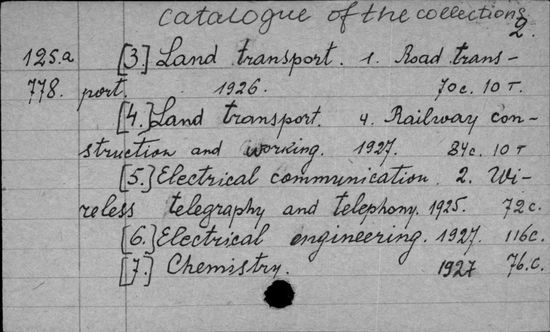 catalogue of the collections
2.
125.a [3.] Land transport. 1. Road trans-
778. port. 1926. 70c. 10 т.
[4.] Land transport. 4. Railway con-
struction and working. 1927. 84c. 10 т
[5.] Electrical communication. 2. Wi-
reless telegraphy and telephony. 1925. 72c.
[6.] Electrical engineering. 1927. 116c.
[7.] Chemistry. 1927 76.c.